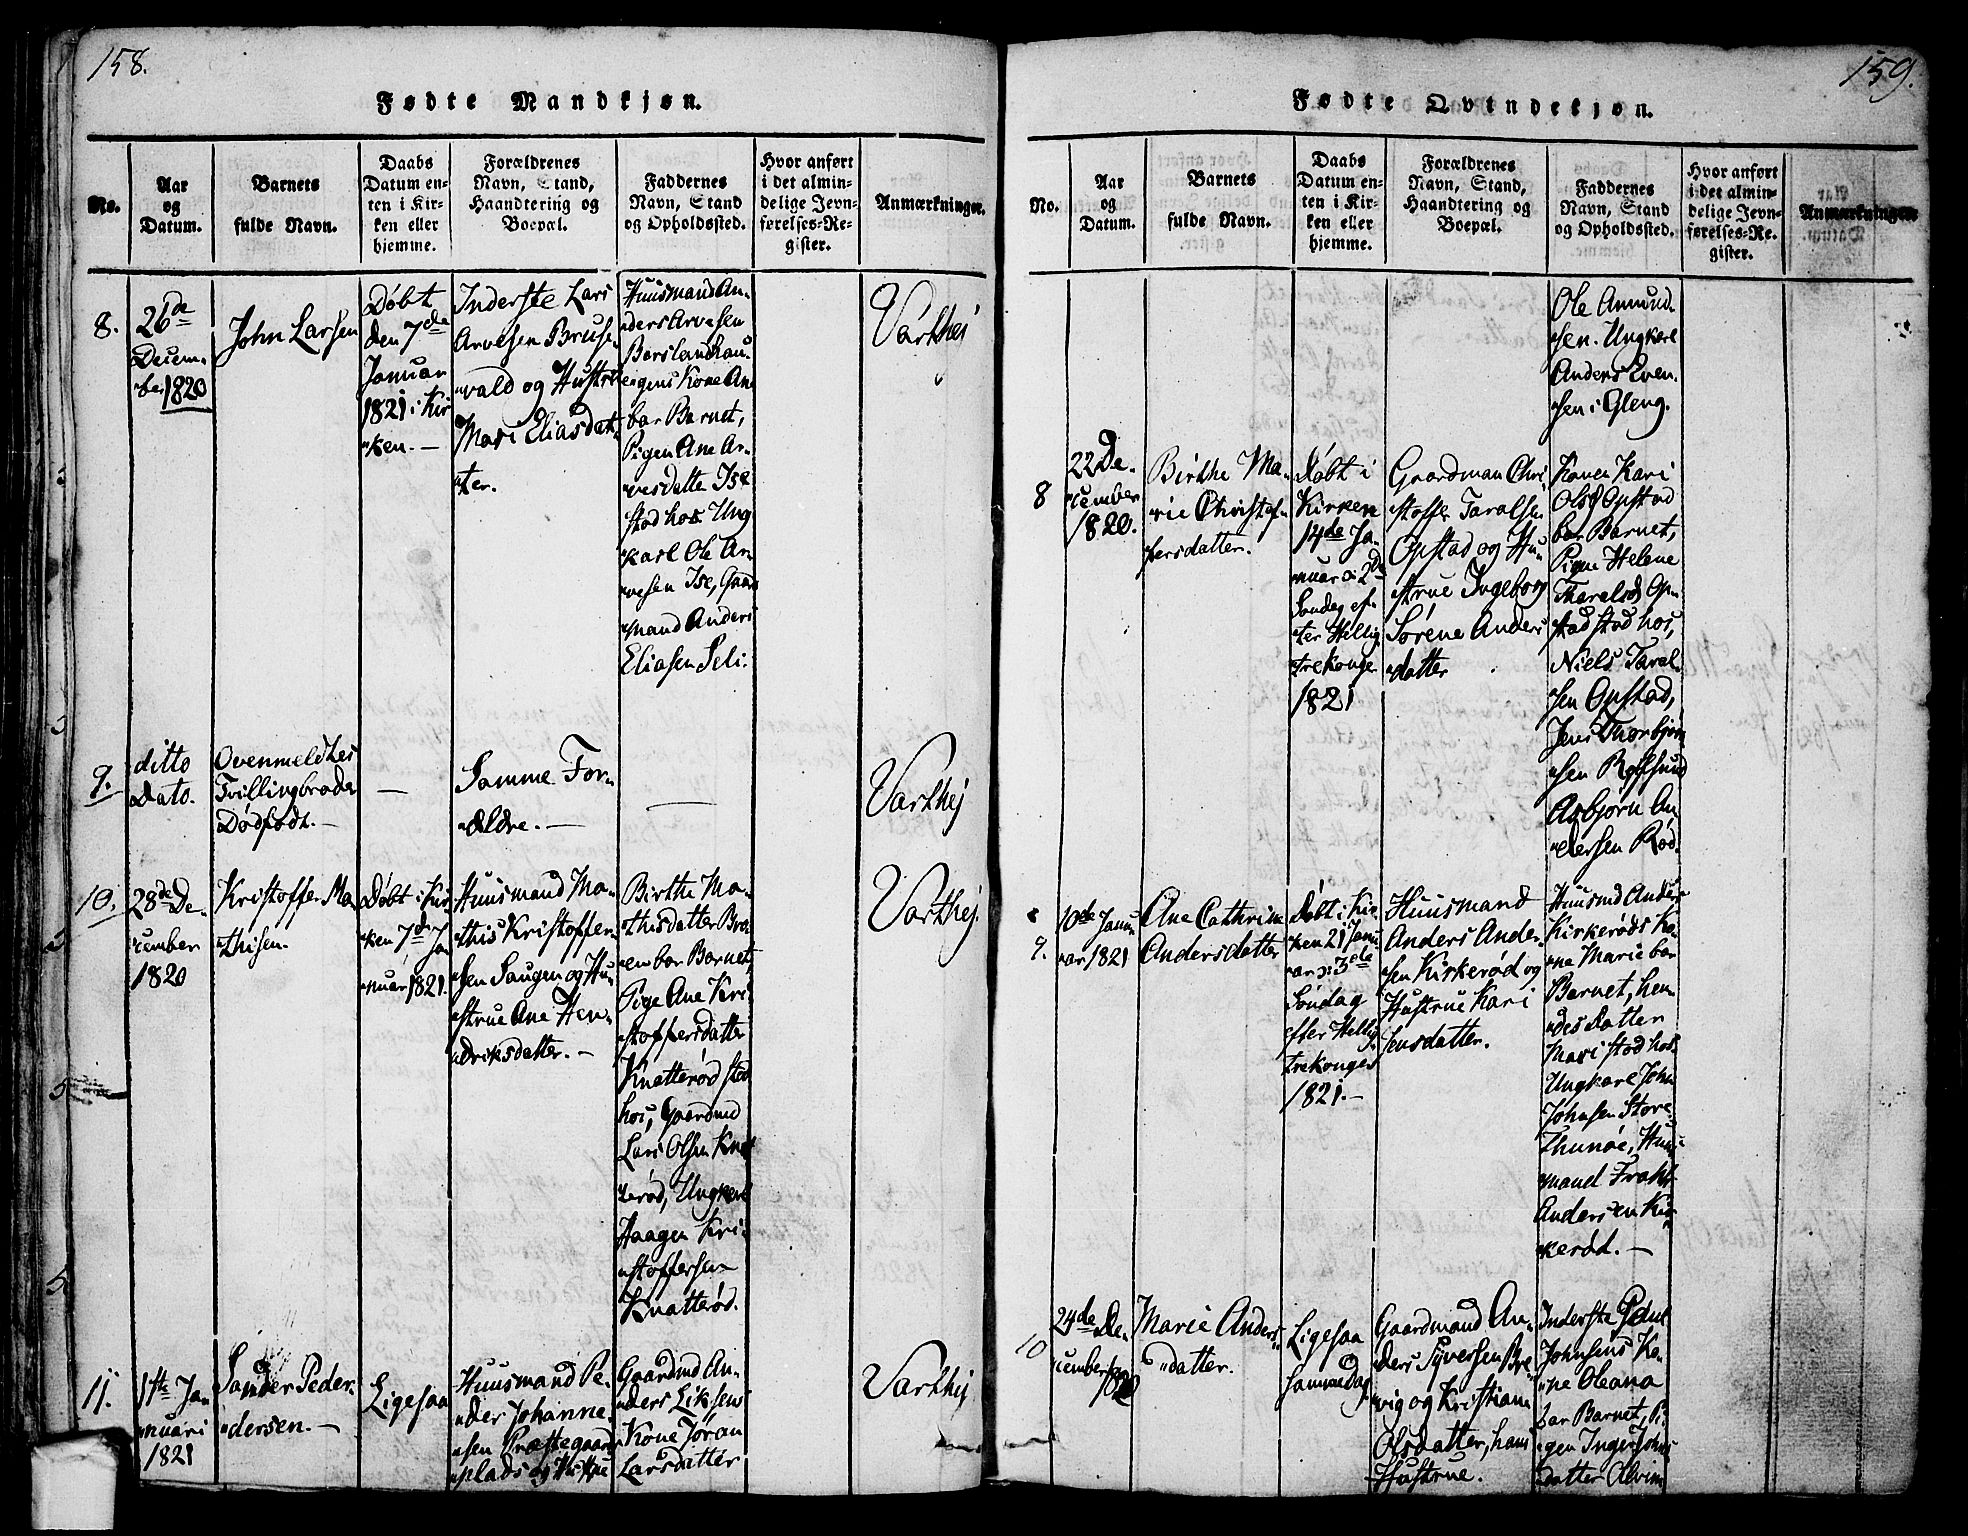 158.
Fødte Mandkjøn.
No.
Aar
og
Datum.
Barnets
fulde Navn.
Daabs
Datum en-
ten i Kir-
ken eller
hjemme.
Forældrenes
Navn, Stand,
Haandtering og
Boepæl.
Faddernes
Navn, Stand
og Opholdssted.
Hvor anført
i det almin-
delige Jevn-
førelses-Re-
gister.
Anmærkninger.
8.
26de
Decem-
ber 1820
John Larsen
Døbt
den 7de
Januar
1821 i Kir
ken.-
Inderste Lars
Arvesen Bruse-
vald og Hustr
Mari Eliasdat-
ter.
Huusmand An-
ders Arvesen
Borslandhau-
gens Kone Ane
bar Barnet,
Pigen Ane Ar-
vesdatter Ise
stod hos Ung
karl Ole Ar-
vesen Ise, Gaar
mand Anders
Eliasen Seli.
Varthej
9.
ditto
Dato.
Ovenmeldtes
Tvillingbroder
Dødfødt.-
-
Samme For-
ældre.-
-
Varthej
10.
28de De-
cember
1820
Kristoffer Ma-
thisen.
Døbt i Kir
ken 7de Ja
nuar 1821.
Huusmand Ma-
this Kristoffer-
sen Haugen og Hu-
strue Ane Hen-
driksdatter.-
Birthe Ma-
thisdatter Bro-
en bar Barnet,
Pige Ane Kri-
stoffersdatter
Knatterød stod
hos, Gaardmd
Lars Olsen Knat
terød, Ungkarl
Haagen Kri-
stoffersen
Knatterød.
Varthej.
11.
1ste Ja-
nuari
1821
Sander Peder-
dersen.-
Ligesaa
Huusmand Pe-
der Johanne-
sen Præstegaard
plads og Hustrue
Gaardmd An-
ders Eriksens
Kone Jøran
Larsdatter
Varthej
159.
Fødte Qvindekjøn.
No.
Aar
og
Datum.
Barnets
fulde Navn.
Daabs
Datum en-
ten i Kir-
ken eller
hjemme.
Forældrenes
Navn, Stand,
Haandtering og
Boepæl.
Faddernes
Navn, Stand
og Opholdssted.
Hvor anført
i det almin-
delige Jevn-
førelses-Re-
gister.
Anmærkninger.
Ole Amund-
sen. Ungkarl
Anders Even-
sen i Gleng.
8
22 De-
cember
1820.
Birthe Ma-
rie Christof-
fersdatter.
Døbt i
Kirken
14de Ja-
nuar ɔ: 2de
Søndag ef-
ter Hellig
trekonger
1821
Gaardman Chri
stoffer Taralsen
Opstad og Hu-
strue Ingeborg
Sørene Anders
datter
Konen Kari
Olsd Opstad
bar Barnet,
Pigen Helene
Tharalsd Op-
stad stod hos,
Niels Taral-
sen Opstad,
Jens Thorbjørn
sen
Asbjørn An-
dersen Rød.
9.
10de Janu
ar 1821
Ane Cathrine
Andersdatter
Døbt i Kir-
ken 21 Janu
ar ɔ: 3de
Søndag
efter Hellig
trekonger
1821.-
Huusmand
Anders Ander-
sen Kirkerød og
Hustrue Kari
Jensdatter.
Huusmd Anders
Kirkerøds Ko-
ne Marie bar
Barnet, hen-
des Datter
Mari stod hos.
Ungkarl John
Johnsen Store
Thunøe, Huus
mand
Andersen Kir-
kerød.-
10
24de De-
cember 1820
Marie Anders-
datter.
Ligesaa
samme Dag
Gaardmand An-
ders Syversen Bre-
vig og Kristiane
Olsdatter, hans
Hustrue.
Inderste Poul
Johnsens Ko-
ne Oleana
bar Barnet, Pi-
gen Inger Johns
datter